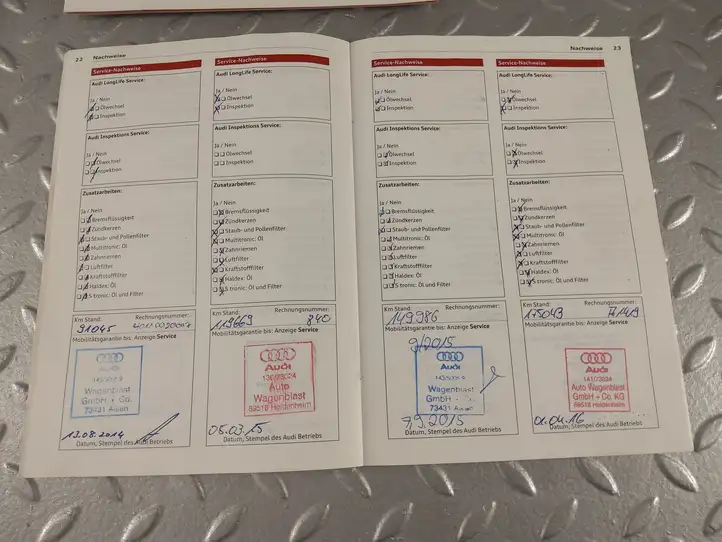 22 Nachweise
Service-Nachweise
Audi LongLife Service:
Ja / Nein
Ölwechsel
Inspektion
Audi Inspektions Service:
Ja / Nein
Ölwechsel
Inspektion
Zusatzarbeiten:
Ja / Nein
Bremsflüssigkeit
Zündkerzen
Staub- und Pollenfilter
Multitronic: Öl
Zahnriemen
Luftfilter
Kraftstofffilter
Haldex: Öl
S tronic: Öl und Filter
Km Stand: Rechnungsnummer:
91045
Mobilitätsgarantie bis: Anzeige Service
Audi
Wagenblast
GmbH + Co.
73431 Aalen
13.08.2014
Datum, Stempel des Audi Betriebs
Service-Nachweise
Audi LongLife Service:
Ja / Nein
Ölwechsel
Inspektion
Audi Inspektions Service:
Ja / Nein
Ölwechsel
Inspektion
Zusatzarbeiten:
Ja / Nein
Bremsflüssigkeit
Zündkerzen
Staub- und Pollenfilter
Multitronic: Öl
Zahnriemen
Luftfilter
Kraftstofffilter
Haldex: Öl
S tronic: Öl und Filter
Km Stand: Rechnungsnummer:
119669 840
Mobilitätsgarantie bis: Anzeige Service
Audi
Auto
Wagenblast
89518 Heidenheim
05.03.15
Datum, Stempel des Audi Betriebs
Nachweise 23
Service-Nachweise
Audi LongLife Service:
Ja / Nein
Ölwechsel
Inspektion
Audi Inspektions Service:
Ja / Nein
Ölwechsel
Inspektion
Zusatzarbeiten:
Ja / Nein
Bremsflüssigkeit
Zündkerzen
Staub- und Pollenfilter
Multitronic: Öl
Zahnriemen
Luftfilter
Kraftstofffilter
Haldex: Öl
S tronic: Öl und Filter
Km Stand: Rechnungsnummer:
149986
Mobilitätsgarantie bis: Anzeige Service
9/2015
Audi
Wagenblast
GmbH + Co.
73431 Aalen
7.9.2015
Datum, Stempel des Audi Betriebs
Service-Nachweise
Audi LongLife Service:
Ja / Nein
Ölwechsel
Inspektion
Audi Inspektions Service:
Ja / Nein
Ölwechsel
Inspektion
Zusatzarbeiten:
Ja / Nein
Bremsflüssigkeit
Zündkerzen
Staub- und Pollenfilter
Multitronic: Öl
Zahnriemen
Luftfilter
Kraftstofffilter
Haldex: Öl
S tronic: Öl und Filter
Km Stand: Rechnungsnummer:
175043
Mobilitätsgarantie bis: Anzeige Service
Audi
Auto Wagenblast
GmbH + Co. KG
89518 Heidenheim
01.04.16
Datum, Stempel des Audi Betriebs